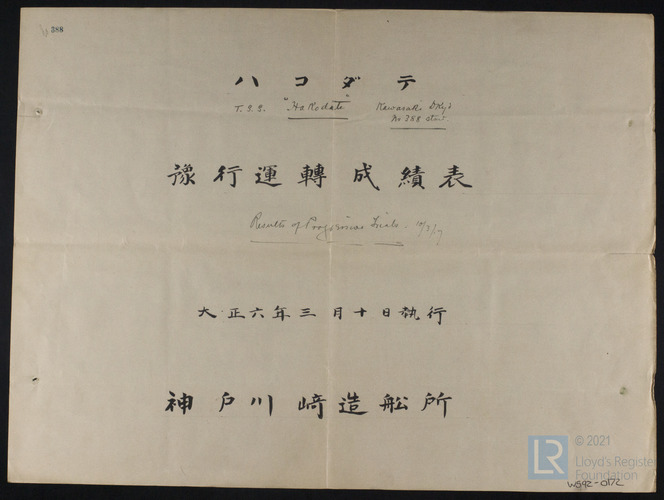 388
ハコダテ
T.S.S. "Hakodate" Kawasaki Dkyd
No 388 stm
豫行運轉成績表
Results of Progressive Trials. 10/3/17
大正六年三月十日執行
神戸川﨑造舩所
© 2021
LR Lloyd's Register
Foundation
W592-0172